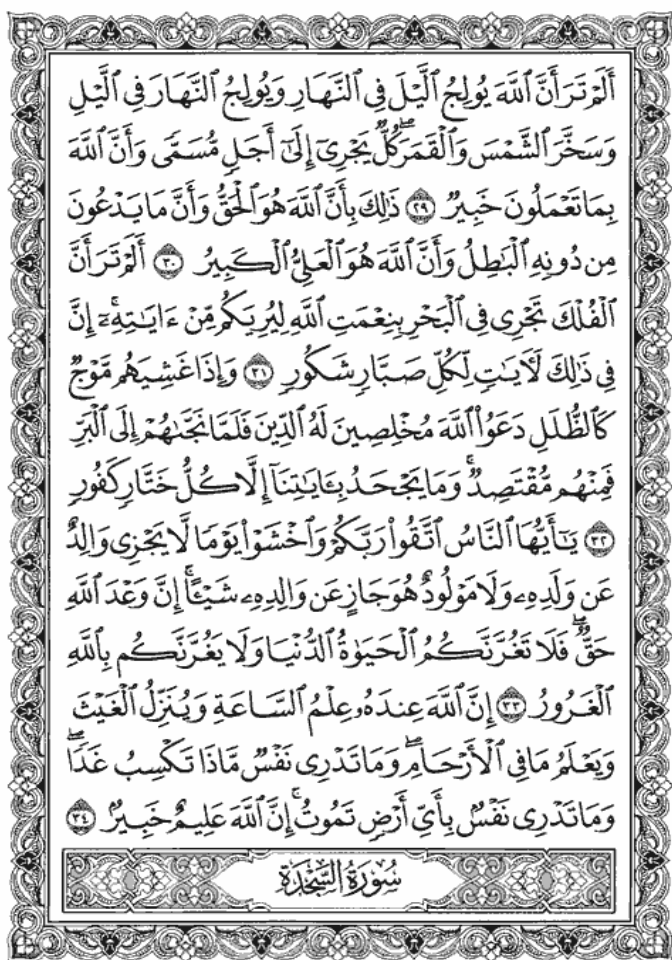 أَلَمْ تَرَ أَنَّ ٱللَّهَ يُولِجُ ٱلَّيْلَ فِى ٱلنَّهَارِ وَيُولِجُ ٱلنَّهَارَ فِى ٱلَّيْلِ
وَسَخَّرَ ٱلشَّمْسَ وَٱلْقَمَرَۖ كُلٌّ يَجْرِىٓ إِلَىٰٓ أَجَلٍ مُّسَمًّى وَأَنَّ ٱللَّهَ
بِمَا تَعْمَلُونَ خَبِيرٌ ٢٩ ذَٰلِكَ بِأَنَّ ٱللَّهَ هُوَ ٱلْحَقُّ وَأَنَّ مَا يَدْعُونَ
مِن دُونِهِ ٱلْبَٰطِلُ وَأَنَّ ٱللَّهَ هُوَ ٱلْعَلِىُّ ٱلْكَبِيرُ ٣٠ أَلَمْ تَرَ أَنَّ
ٱلْفُلْكَ تَجْرِى فِى ٱلْبَحْرِ بِنِعْمَتِ ٱللَّهِ لِيُرِيَكُم مِّنْ ءَايَٰتِهِۦٓۚ إِنَّ
فِى ذَٰلِكَ لَءَايَٰتٍ لِّكُلِّ صَبَّارٍ شَكُورٍ ٣١ وَإِذَا غَشِيَهُم مَّوْجٌ
كَٱلظُّلَلِ دَعَوُا۟ ٱللَّهَ مُخْلِصِينَ لَهُ ٱلدِّينَ فَلَمَّا نَجَّىٰهُمْ إِلَى ٱلْبَرِّ
فَمِنْهُم مُّقْتَصِدٌۚ وَمَا يَجْحَدُ بِـَٔايَٰتِنَآ إِلَّا كُلُّ خَتَّارٍ كَفُورٍ
٣٢ يَٰٓأَيُّهَا ٱلنَّاسُ ٱتَّقُوا۟ رَبَّكُمْ وَٱخْشَوْا۟ يَوْمًا لَّا يَجْزِى وَالِدٌ
عَن وَلَدِهِۦ وَلَا مَوْلُودٌ هُوَ جَازٍ عَن وَالِدِهِۦ شَيْـًٔاۚ إِنَّ وَعْدَ ٱللَّهِ
حَقٌّۖ فَلَا تَغُرَّنَّكُمُ ٱلْحَيَوٰةُ ٱلدُّنْيَا وَلَا يَغُرَّنَّكُم بِٱللَّهِ
ٱلْغَرُورُ ٣٣ إِنَّ ٱللَّهَ عِندَهُۥ عِلْمُ ٱلسَّاعَةِ وَيُنَزِّلُ ٱلْغَيْثَ
وَيَعْلَمُ مَا فِى ٱلْأَرْحَامِۖ وَمَا تَدْرِى نَفْسٌ مَّاذَا تَكْسِبُ غَدًاۖ
وَمَا تَدْرِى نَفْسٌۢ بِأَىِّ أَرْضٍ تَمُوتُۚ إِنَّ ٱللَّهَ عَلِيمٌ خَبِيرٌۢ ٣٤
سُورَةُ السَّجْدَةِ